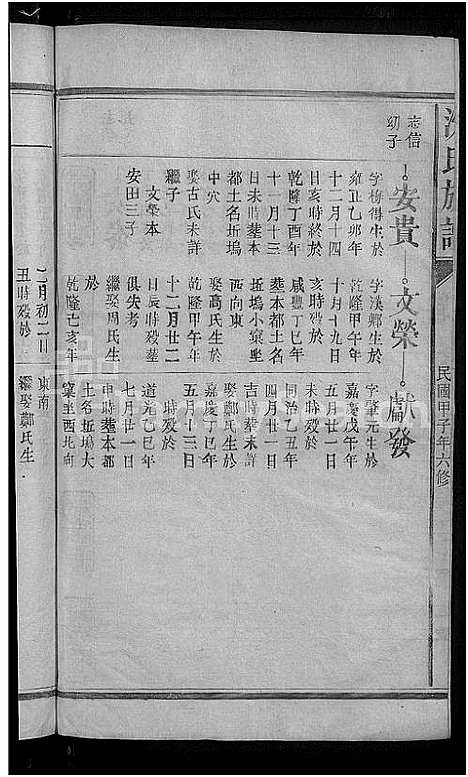 氏族譜
民國甲子年六修
志信
幼子
安貴
文榮
獻發
字梅得生於
雍正乙卯年
十二月十四
日亥時終於
乾隆丁酉年
十一月十三
日未時塟本
都土名折塢
中穴
娶古氏未詳
繼子
文榮本
安田三子
字漢鄉生於
乾隆甲午年
十月十九日
亥時殁於
咸豐丁巳年
塟本都土名
折塢小窠坐
西向東
娶高氏生於
乾隆甲午年
十二月廿二
日辰時殁塟
俱失考
繼娶周氏生
於
乾隆己亥年
字肇元生於
嘉慶戊午年
五月廿一日
未時殁於
同治乙丑年
四月廿一日
吉時塟未詳
娶鄭氏生於
嘉慶丁巳年
五月十三日
時殁於
道光乙巳年
七月廿一日
申時塟本都
土名折塢大
窠坐西北向
二月初二日
丑時殁於
東南
繼娶鄭氏生